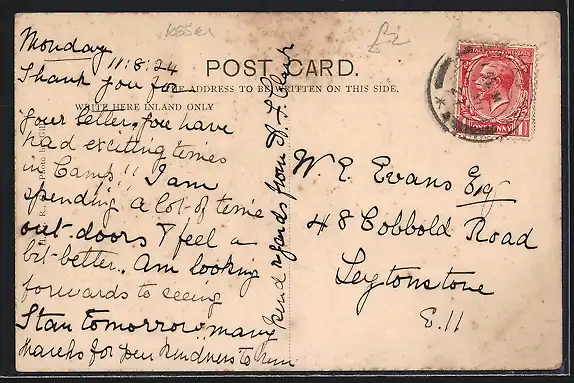 Monday
11.8.24
POST CARD.
THE ADDRESS TO BE WRITTEN ON THIS SIDE.
WRITE HERE INLAND ONLY
Thank you for
your letter. You have
had exciting times
in Camp!! I am
spending a lot of time
out-doors & feel a
bit better. Am looking
forwards to seeing
Stan tomorrow. many
thanks for your kindness to him
kind regards from A.
W. E. Evans Esq
48 Cobbold Road
Leytonstone
E.11
£2
ONE PENNY